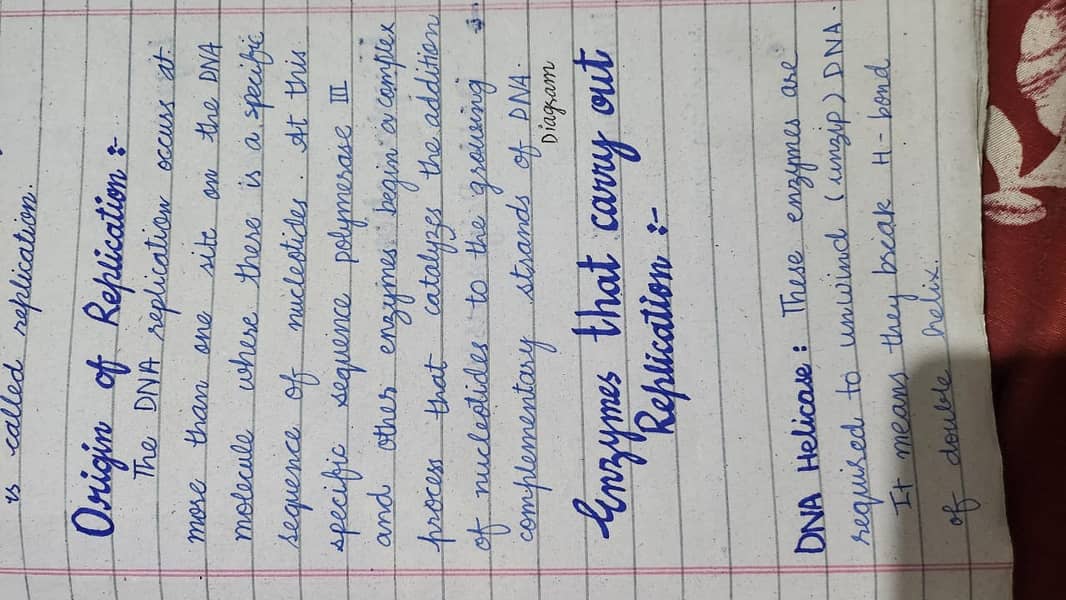 is called replication.
Origin of Replication :-
The DNA replication occurs at
more than one site on the DNA
molecule where there is a specific
sequence of nucleotides. At this
specific sequence polymerase III
and other enzymes begin a complex
process that catalyzes the addition
of nucleotides to the growing
complementary strands of DNA.
Diagram
Enzymes that carry out
Replication :-
DNA Helicase : These enzymes are
required to unwind (unzip) DNA.
It means they break H-bond
of double helix.